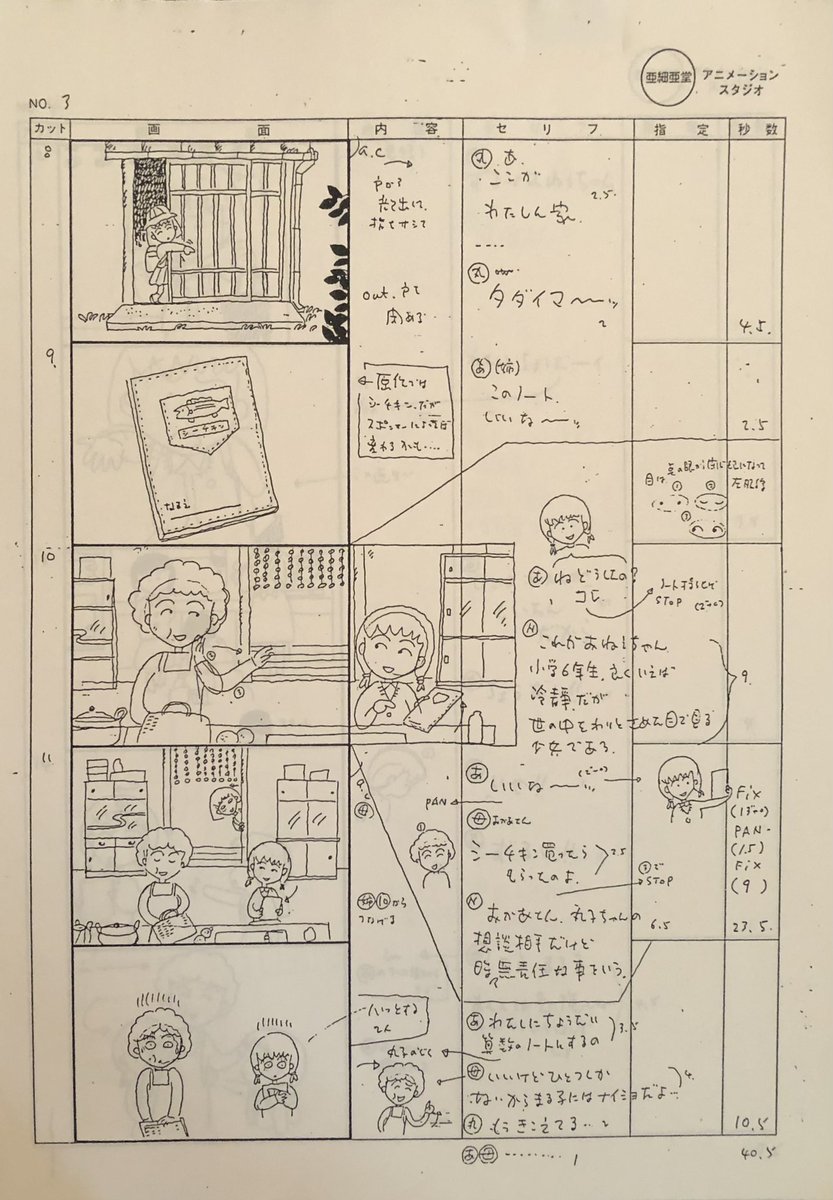 亜細亜堂 アニメーション
スタジオ
NO. 3
カット 画面 内容 セリフ 指定 秒数
8
a.c
戸から
指をサシて
out. 戸を
閉める
丸 あ
ここが
わたしん家
2.5
----
丸
タダイマ〜〜ッ
2
4.5.
9.
シーチキン
← 原作では
シーチキン、だが
あ (姉)
このノート、
いいな〜〜ッ
2.5
10
目は
①
②
③
あ ねどうしたの?
コレ
STOP
N これがおねえちゃん
小学6年生、よくいえば
冷静、だが
世の中をわりとさめた目で見る
少女である。
9.
②
①
11
a.c
母
あ いいな〜〜ッ
PAN
母 おかあさん
シーチキン買ったら
もらったのよ
2.5
①
①で
STOP
姉 ⑩から
つなげる
N おかあさん、丸子ちゃんの
想談相手だけど
時々無責任な事をいう。
6.5
Fix
PAN.
(1.5)
Fix
(9)
23.5.
ハッとする
2人
あ わたしにちょうだい
算数のノートにするの
3.5
母 いいけどひとつしか
ないからまる子にはナイショだよ…
4.
丸 もうきこえてる…
2
10.5
あ 母 ‥‥‥‥ 1
40.5